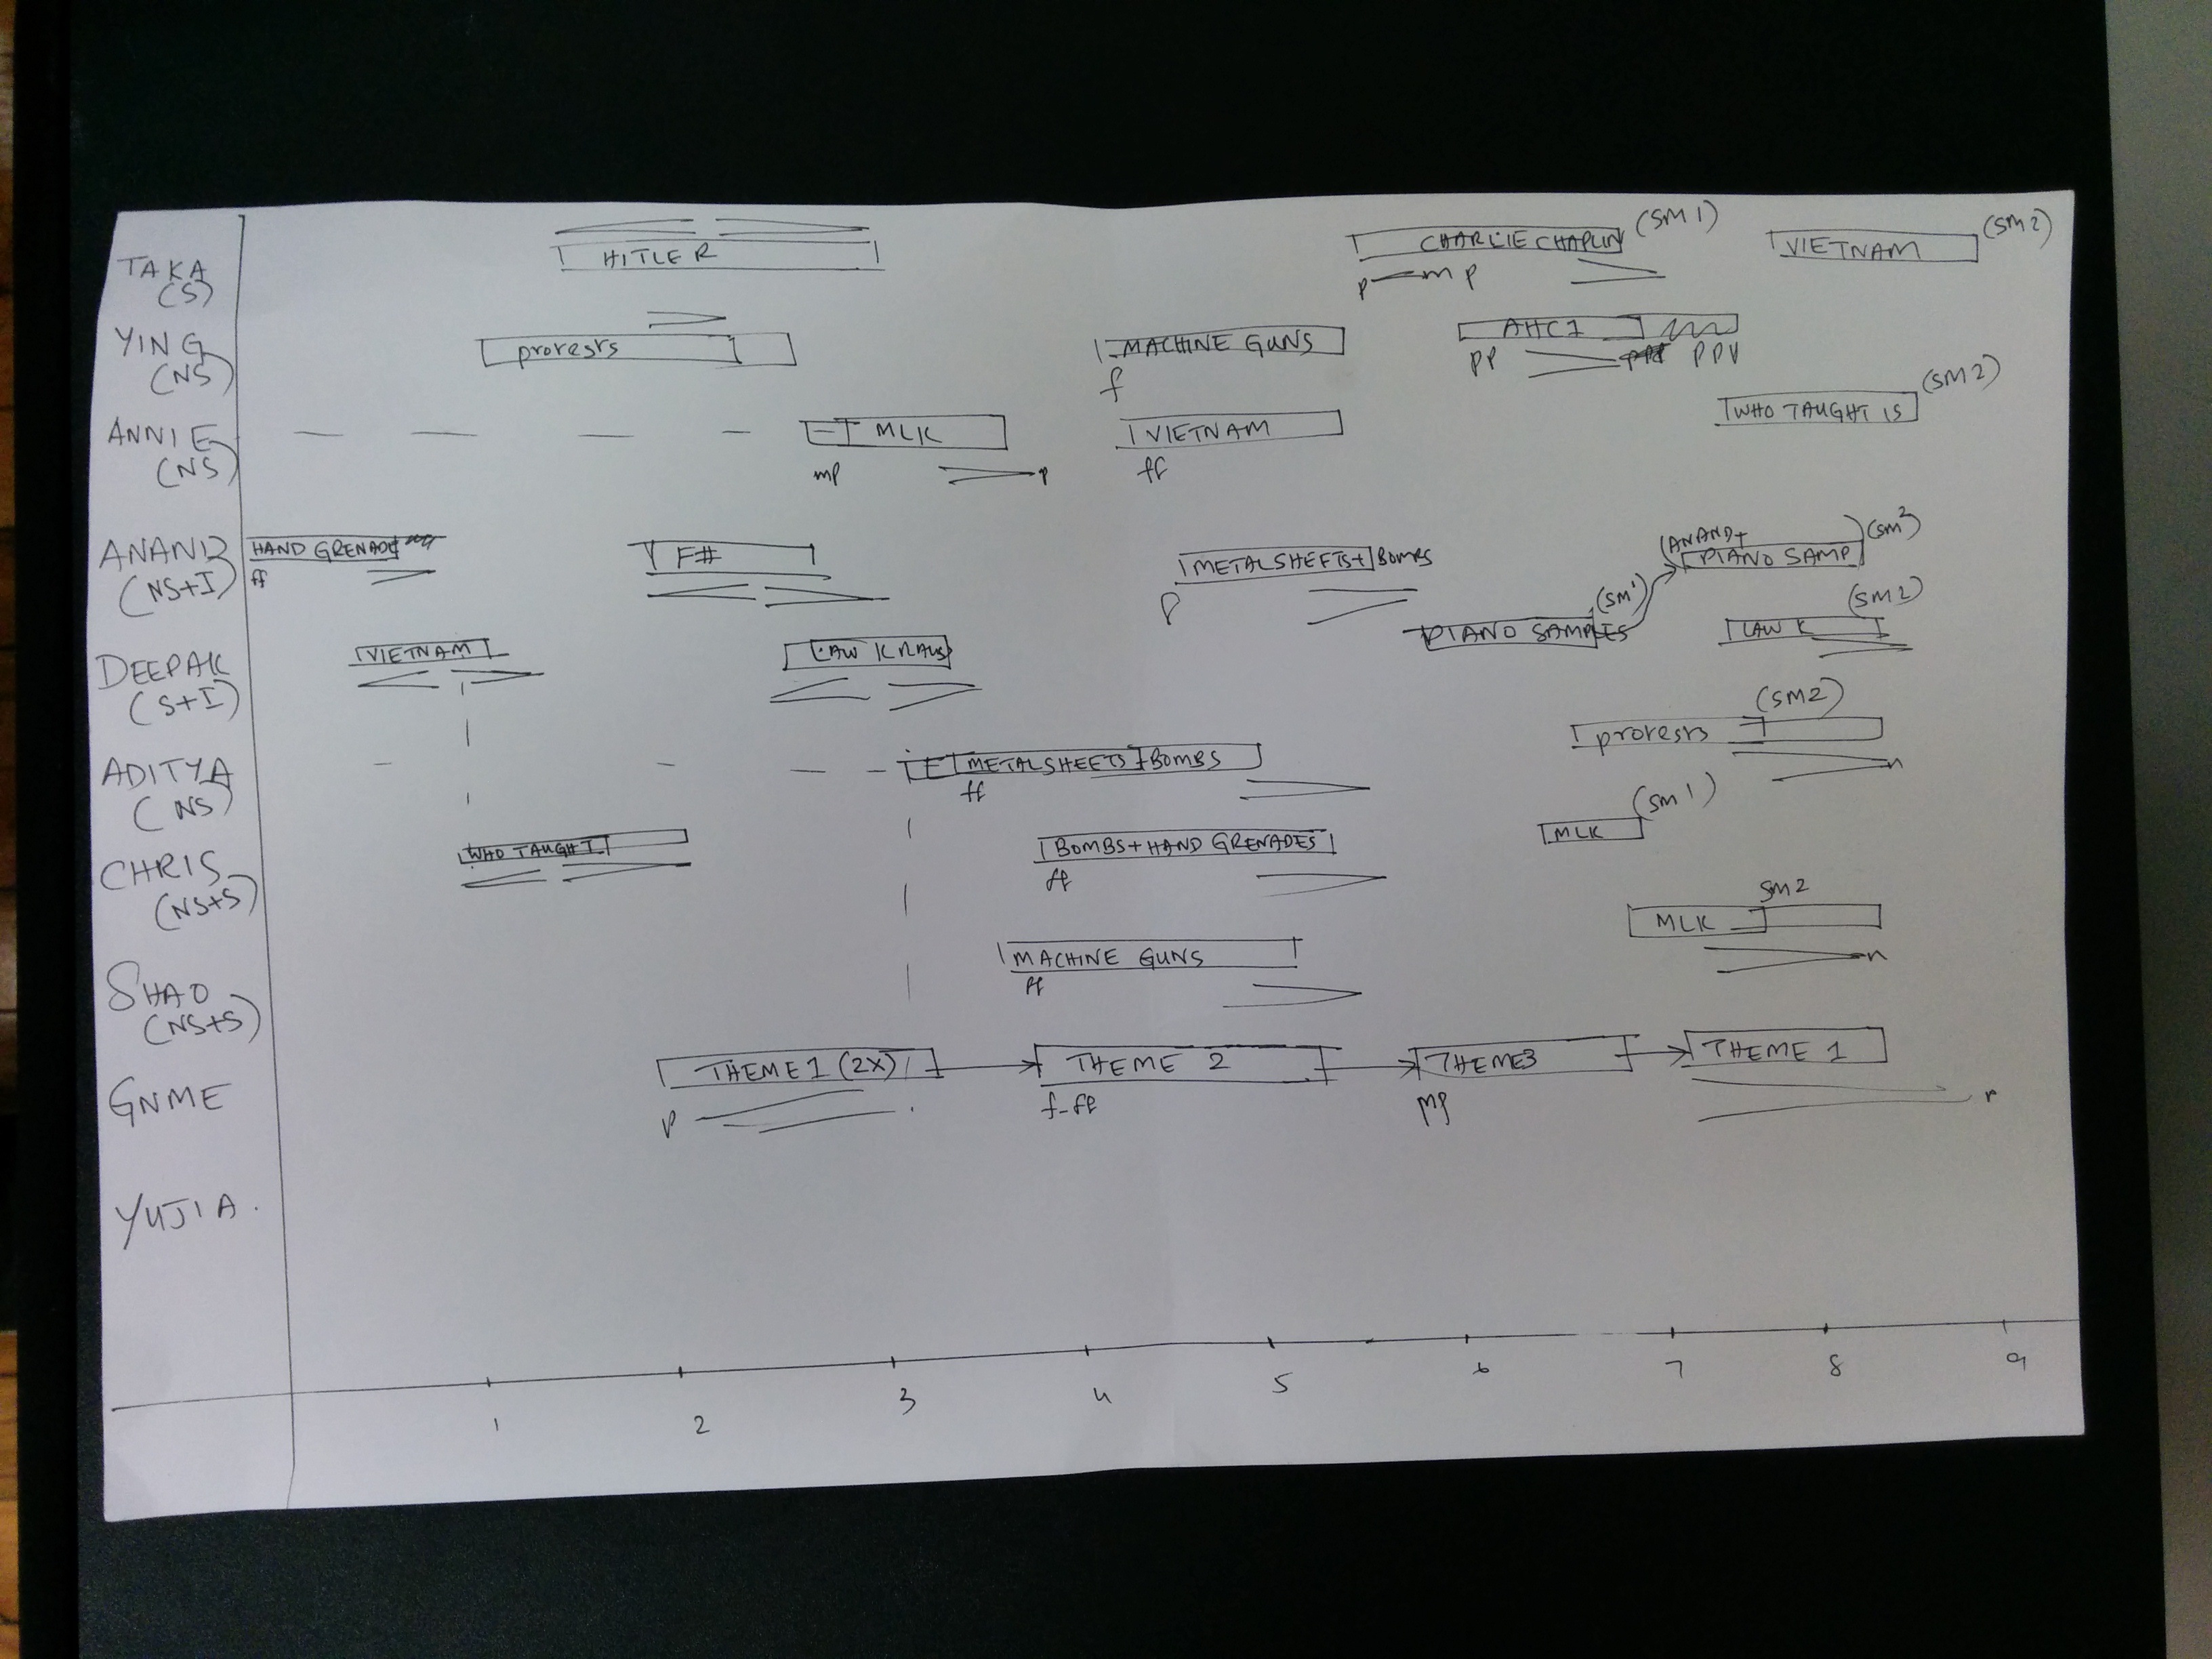 TAKA
(S)
HITLER
CHARLIE CHAPLIN
(SM1)
p mp
VIETNAM
(SM2)
YING
(NS)
protests
MACHINE GUNS
f
AHC1
pp
ANNIE
(NS)
MLK
mp
p
VIETNAM
ff
WHO TAUGHT IS
(SM2)
ANAND
(NS+I)
HAND GRENADE
ff
F#
METALSHEETS+BOMBS
p
PIANO SAMPLES
(SM1)
(ANAND+
PIANO SAMP
(SM2)
DEEPAK
(S+I)
VIETNAM
LAW K
(SM2)
ADITYA
(NS)
METALSHEETS+BOMBS
ff
protests
(SM2)
n
CHRIS
(NS+S)
WHO TAUGHT
BOMBS+HAND GRENADES
ff
MLK
(SM1)
SHAO
(NS+S)
MACHINE GUNS
ff
MLK
SM2
n
GNME
THEME 1 (2X)
p
THEME 2
f-ff
THEME3
mp
THEME 1
YUJIA.
1 2 3 4 5 6 7 8 9